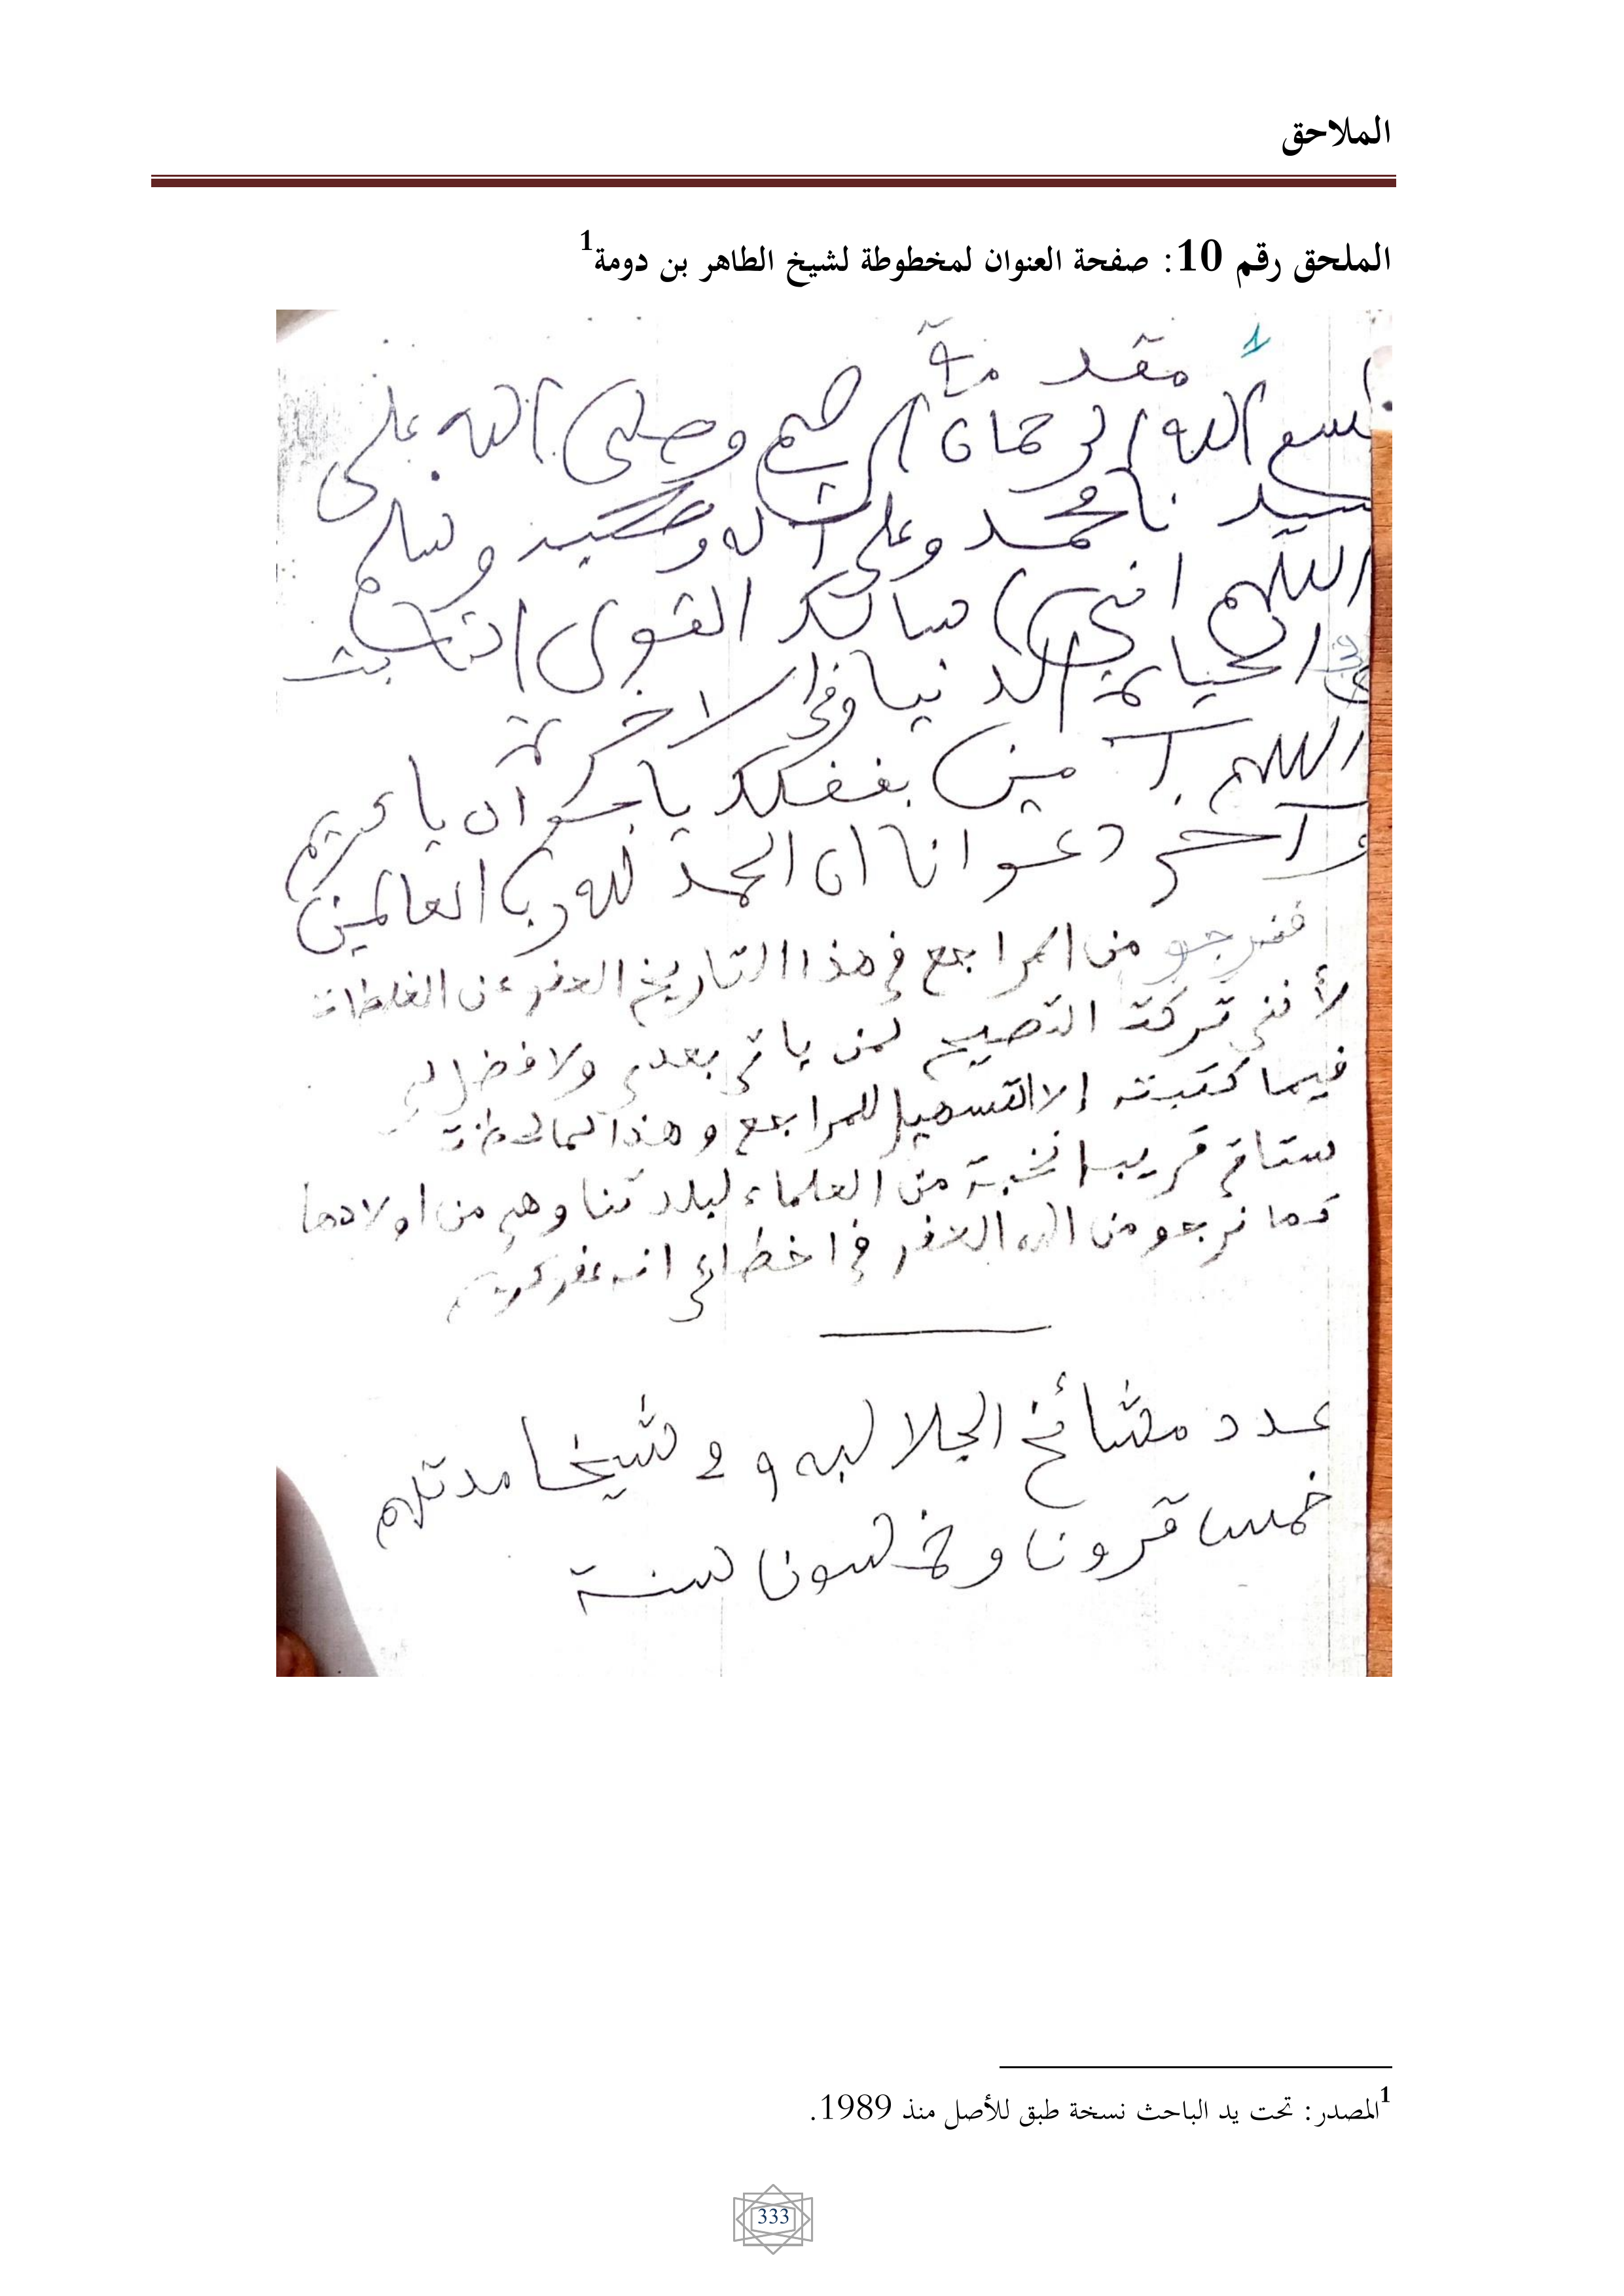 الملاحق
الملحق رقم 10: صفحة العنوان لمخطوطة لشيخ الطاهر بن دومة1
1
مقدمة
بسم الله الرحمان الرحيم وصلى الله على
سيدنا محمد وعلى آله وصحبه وسلم
اللهم اني سالك القول الثابث
في الحياة الدنيا وفي الاخرة
اللهم آمين بفضلك يا جواد يا كريم
وآخر دعوانا ان الحمد لله رب العالمين
فنرجو من المراجع في هذا التاريخ العفو عن الغلطات
لأنني تركت التصحيح لمن ياتي بعدي ولا فضل لي
فيما كتبته إلا التسهيل للمراجع وهذا
ستاتي قريبا نخبة من العلماء لبلدتنا وهم من اولادها
كما نرجو من الله العفو في اخطائي انه عفو كريم
عدد مشائخ الجلاليه و 2 شيخا مدتهم
خمس قرونا وخمسونا سنة
1المصدر: تحت يد الباحث نسخة طبق للأصل منذ 1989.
333